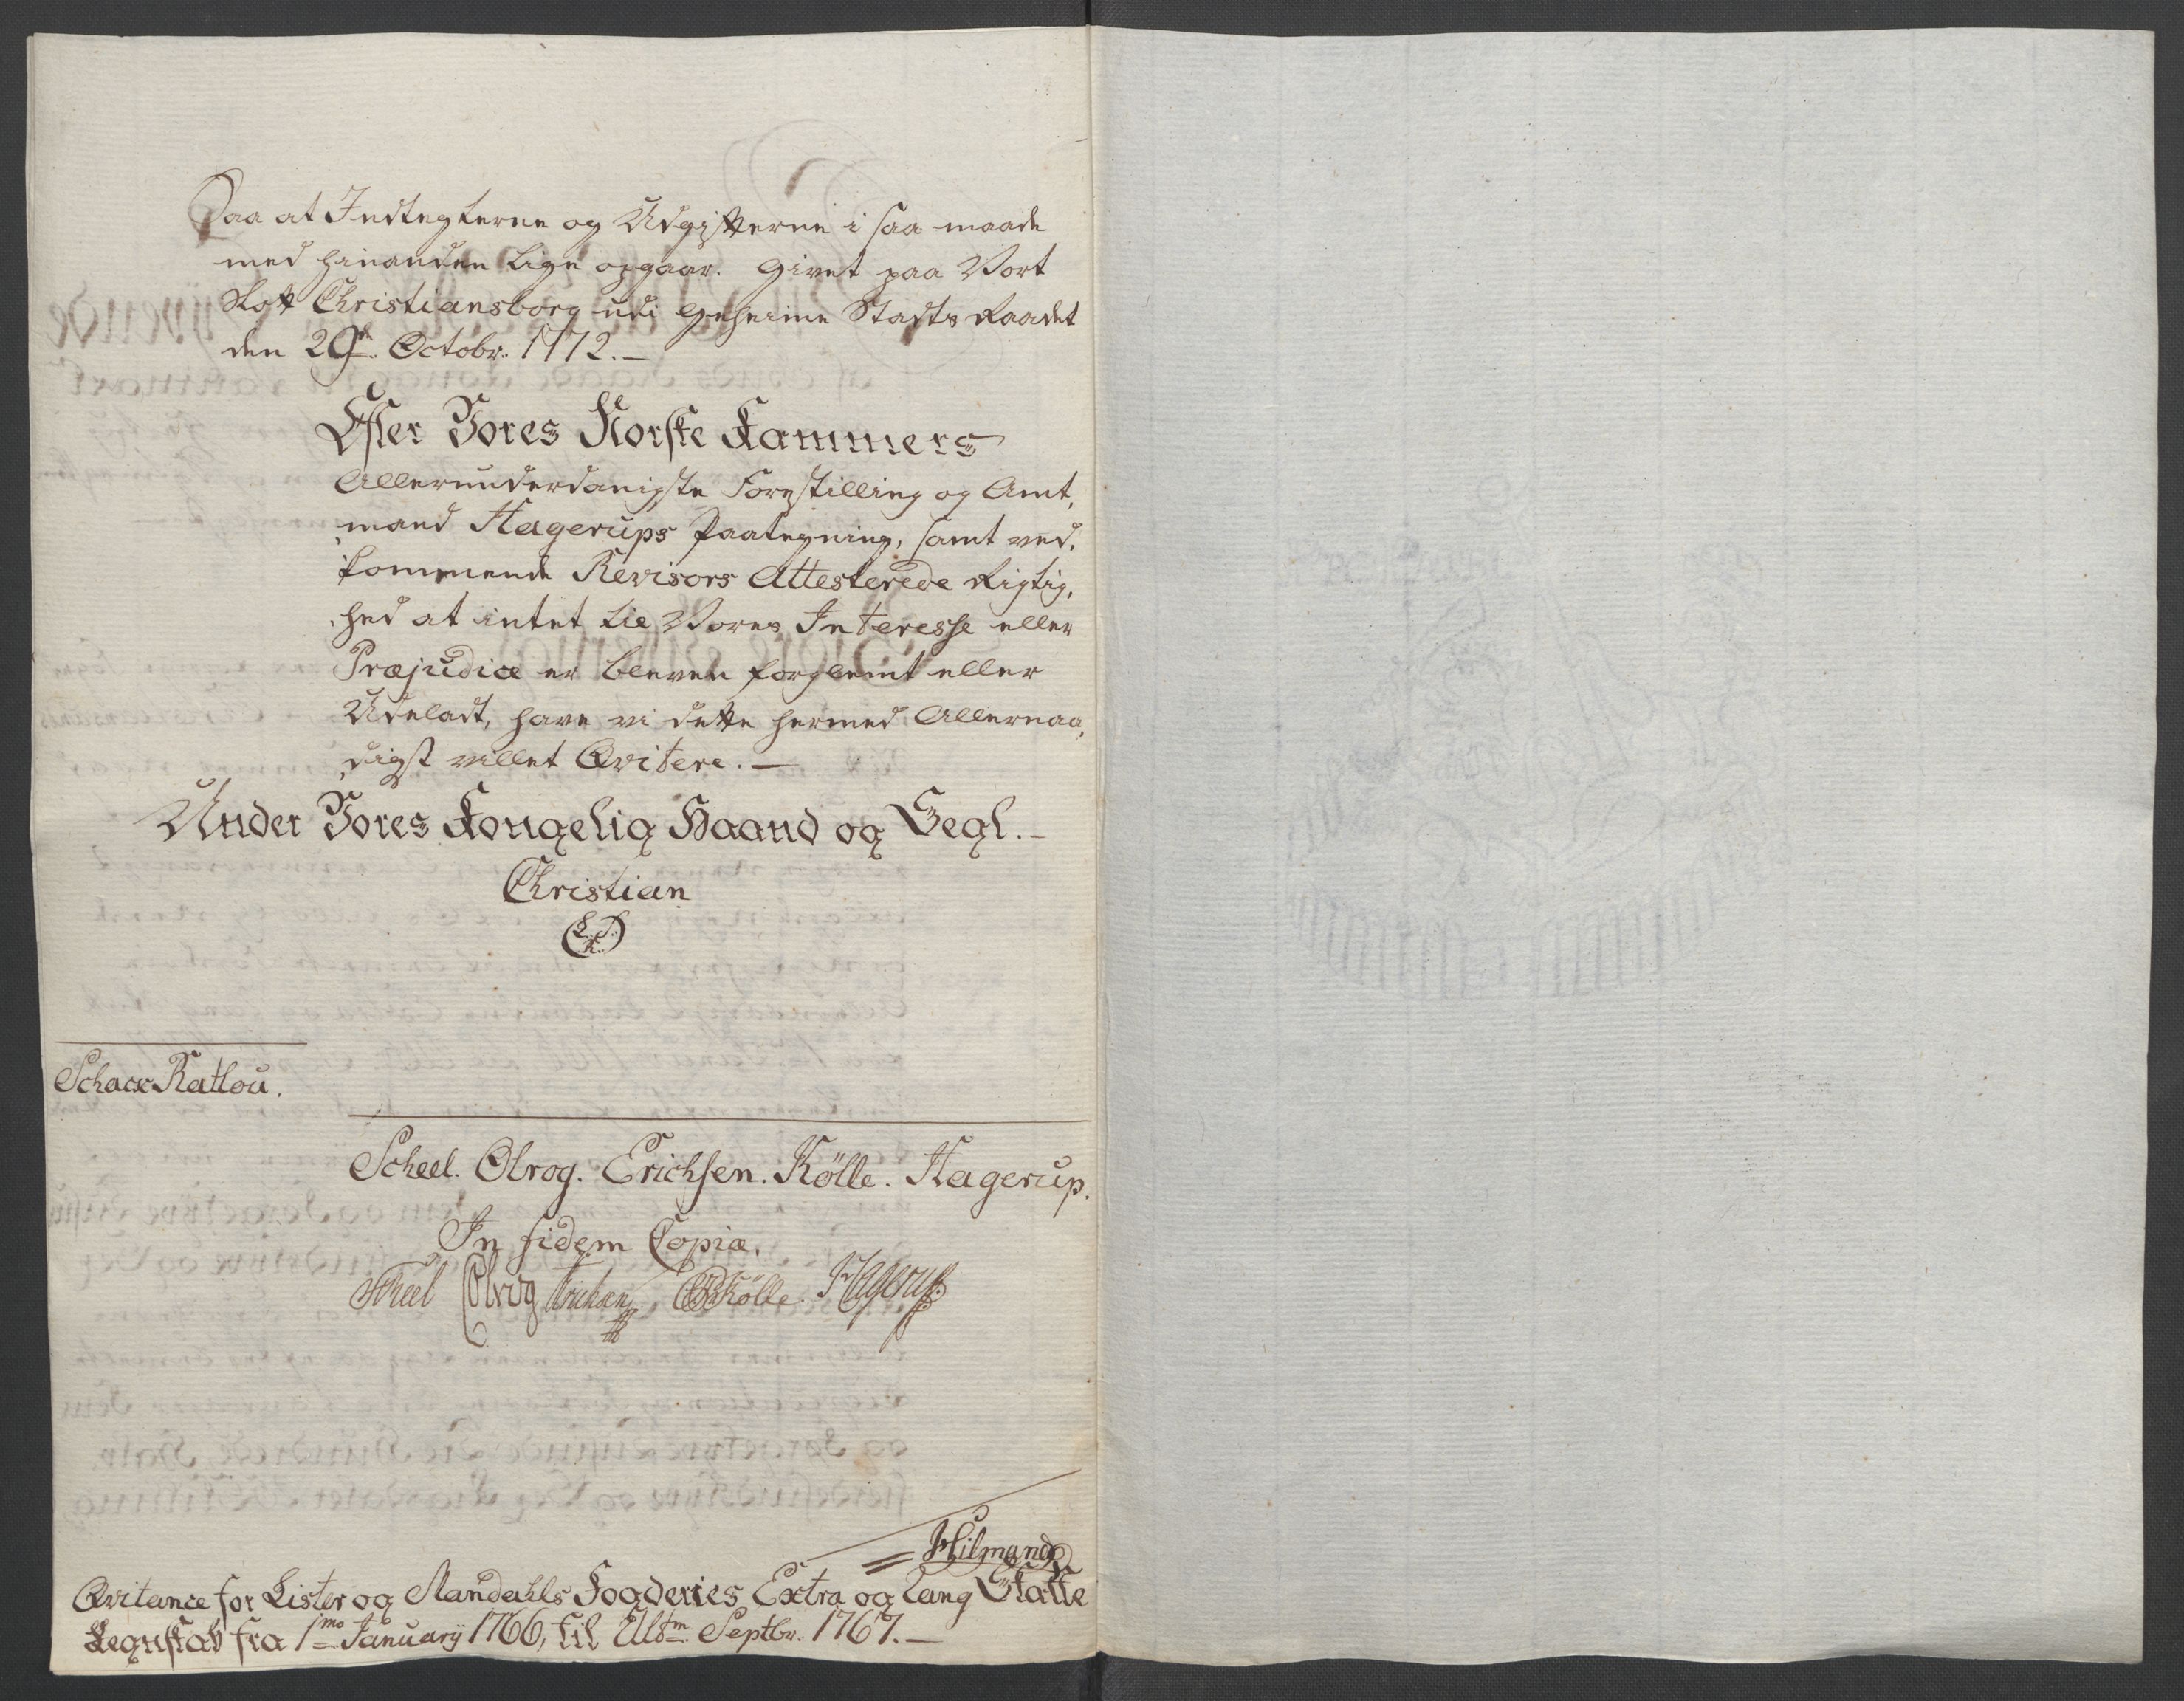 Saa at Indtegterne og Udgifterne i saa maade
med hinanden lige opgaar. Givet paa Vort
Slott Christiansborg udi Geheime Stadts Raadet
den 29de Octobr. 1772.
Efter Vores Norske Kammers
Allerunderdanigste Forestilling og Amt,
mand Hagerups Paategning, samt ved,
kommende Revisors Attesterede Rigtig,
hed at intet til Vores Interesse eller
Præjudice er bleven forglemt eller
Udeladt, have vi dette hermed Allernaa,
digst villet Qvitere.
Under Vores Kongelig Haand og Segl.
Christian
(L. S.)
R.
Schack Ratlou.
Scheel. Olrog. Erichsen. Kölle. Hagerup.
In fidem Copiæ.
Scheel Olrog Erichsen Kölle. Hagerup
Qvitance for Lister og Mandahls Fogderies Extra og Tang Skatte
Regnskab fra 1mo January 1766, til Ultm Septbr. 1767.